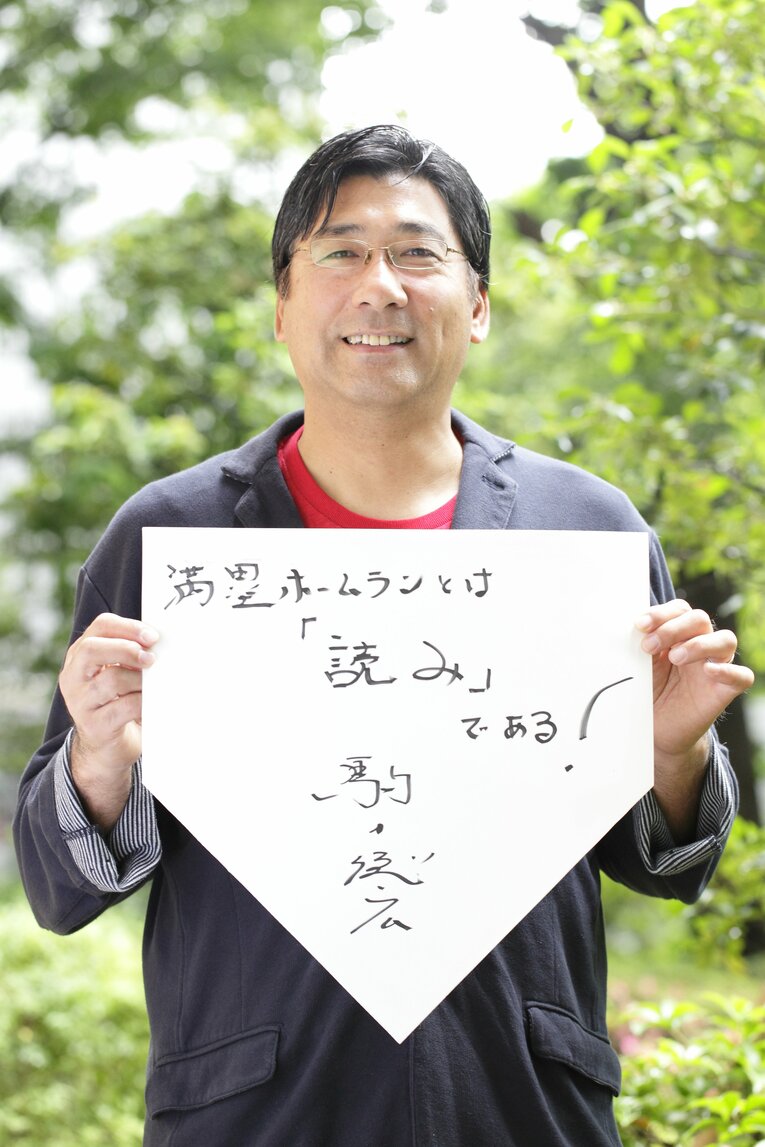 満塁ホームランとは
「読み」
である!
駒田
徳広